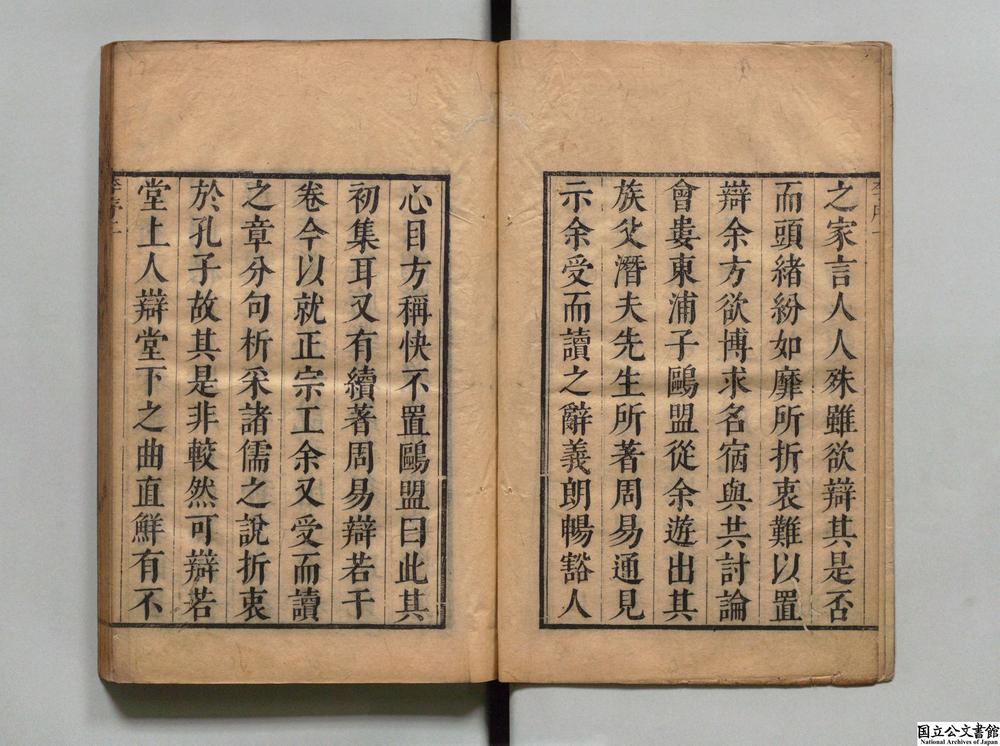 之家言人人殊雖欲辯其是否
而頭緒紛如靡所折衷難以置
辯余方欲博求名宿與共討論
會婁東浦子鷗盟從余遊出其
族父潛夫先生所著周易通見
示余受而讀之辭義朗暢豁人
心目方稱快不置鷗盟曰此其
初集耳又有續著周易辯若干
卷今以就正宗工余又受而讀
之章分句析采諸儒之說折衷
於孔子故其是非較然可辯若
堂上人辯堂下之曲直鮮有不
国立公文書館
National Archives of Japan